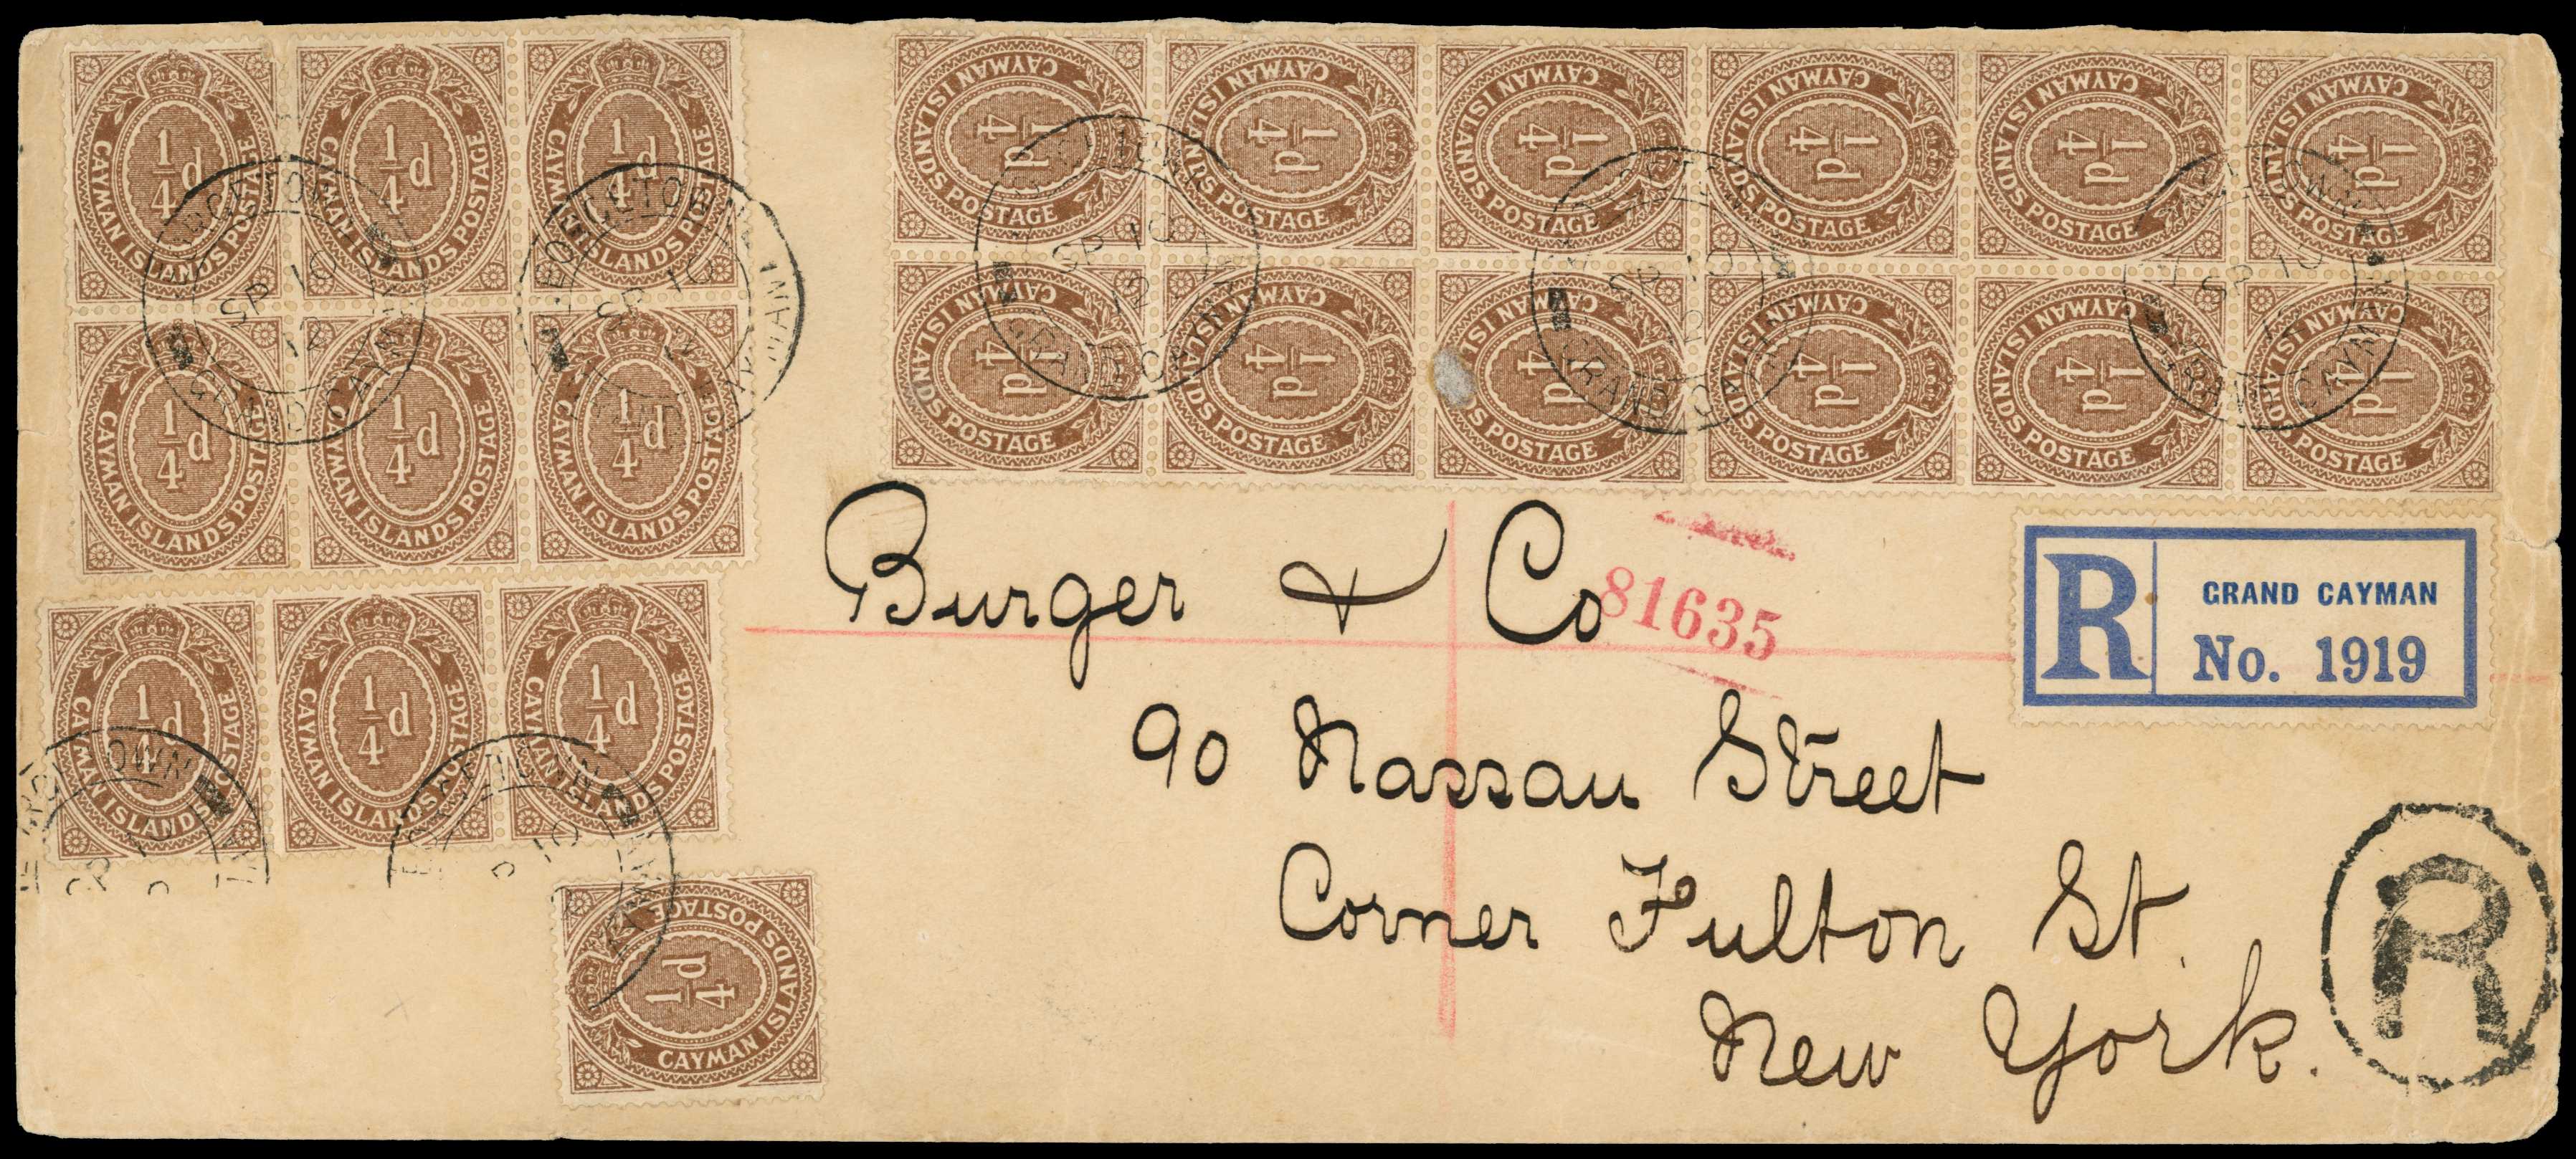 1/4 d
CAYMAN ISLANDS POSTAGE
1/4 d
CAYMAN ISLANDS POSTAGE
1/4 d
CAYMAN ISLANDS POSTAGE
1/4 d
CAYMAN ISLANDS POSTAGE
1/4 d
CAYMAN ISLANDS POSTAGE
1/4 d
CAYMAN ISLANDS POSTAGE
1/4 d
CAYMAN ISLANDS POSTAGE
1/4 d
CAYMAN ISLANDS POSTAGE
1/4 d
CAYMAN ISLANDS POSTAGE
1/4 d
CAYMAN ISLANDS POSTAGE
1/4 d
CAYMAN ISLANDS POSTAGE
1/4 d
CAYMAN ISLANDS POSTAGE
1/4 d
CAYMAN ISLANDS POSTAGE
1/4 d
CAYMAN ISLANDS POSTAGE
1/4 d
CAYMAN ISLANDS POSTAGE
1/4 d
CAYMAN ISLANDS POSTAGE
1/4 d
CAYMAN ISLANDS POSTAGE
1/4 d
CAYMAN ISLANDS POSTAGE
1/4 d
CAYMAN ISLANDS POSTAGE
1/4 d
CAYMAN ISLANDS POSTAGE
1/4 d
CAYMAN ISLANDS POSTAGE
1/4 d
CAYMAN ISLANDS POSTAGE
SP 10
12
GRAND CAYMAN
SP 10
SP 10
12
SP 10
12
GRAND CAYMAN
SP 10
12
Burger & Co
81635
90 Nassau Street
Corner Fulton St.
New York.
R
GRAND CAYMAN
No. 1919
R